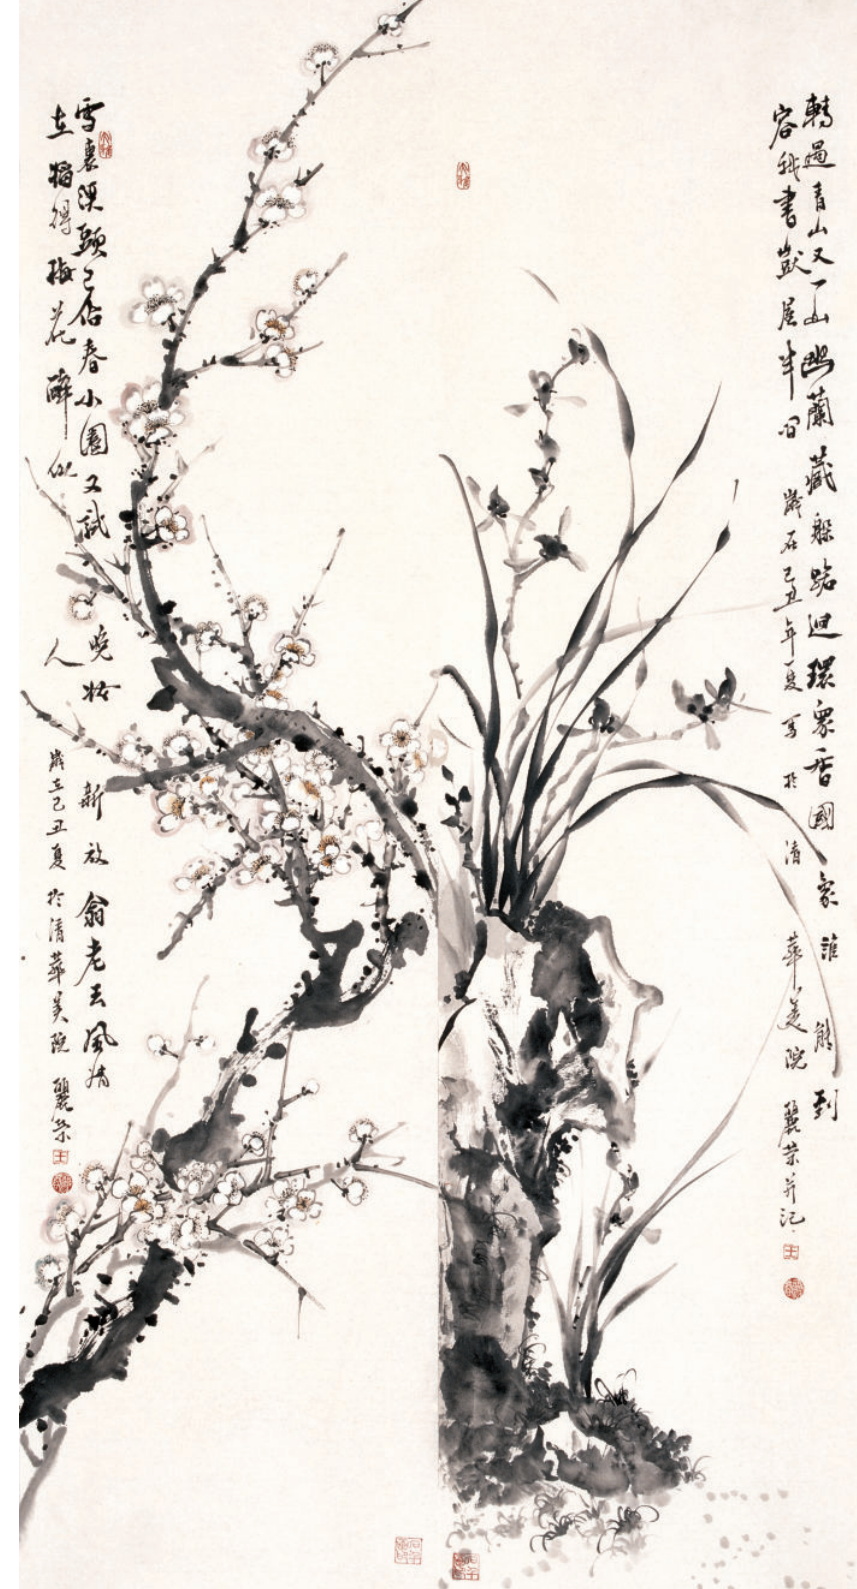 轉過青山又一山幽蘭藏躲路迴環眾香國裏誰能到
容我書獃屋半間 歲在己丑年夏寫於清華美院 麗荣并记
雪裏溪頭已佔春小園又試晚妆新放翁老去風情
在惱得梅花醉似人 歲在己丑夏於清華美院 麗荣